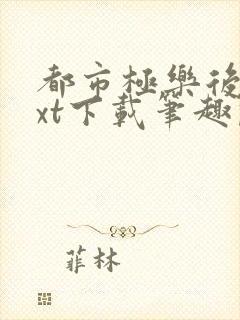 都市極樂後
xt下載筆趣
菲林